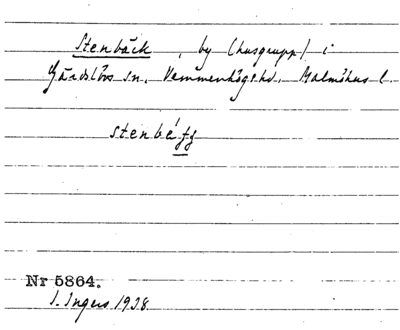 Stenbäck, by (husgrupp) i
Gärdslövs sn, Vemmenhögs hd, Malmöhus l.
Nr 5864.
I. Ingers 1938